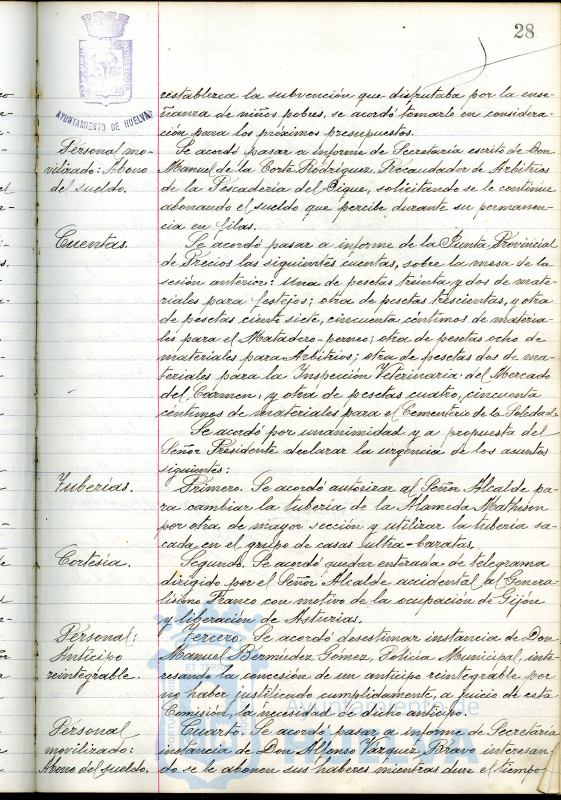 28
AYUNTAMIENTO DE HUELVA
restablezca la subvención que disfrutaba por la ense-
ñanza de niños pobres, se acordó tomarlo en considera-
ción para los próximos presupuestos.
Personal mo-
vilizado: Abono
del sueldo.
Se acordó pasar a informe de Secretaría escrito de Don
Manuel de la Corte Rodríguez, Recaudador de Arbitrios
de la Pescadería del Dique, solicitando se le continúe
abonando el sueldo que percibe durante su permanen-
cia en filas.
Cuentas.
Se acordó pasar a informe de la Junta Provincial
de Precios las siguientes cuentas, sobre la mesa de la
sesión anterior: Una de pesetas treinta y dos de mate-
riales para festejos; otra de pesetas trescientas, y otra
de pesetas ciento siete, cincuenta céntimos de materia-
les para el Matadero-perneo; otra de pesetas ocho de
materiales para Arbitrios; otra de pesetas dos de ma-
teriales para la Inspección Veterinaria del Mercado
del Carmen, y otra de pesetas cuatro, cincuenta
céntimos de materiales para el Cementerio de la Soledad.
Se acordó por unanimidad y a propuesta del
Señor Presidente declarar la urgencia de los asuntos
siguientes:
Tuberías.
Primero. Se acordó autorizar al Señor Alcalde pa-
ra cambiar la tubería de la Alameda Matheson
por otra de mayor sección y utilizar la tubería sa-
cada, en el grupo de casas ultra-baratas.
Cortesía.
Segundo. Se acordó quedar enterada de telegrama
dirigido por el Señor Alcalde accidental al Genera-
lísimo Franco con motivo de la ocupación de Gijón
y liberación de Asturias.
Personal:
Anticipo
reintegrable.
Tercero. Se acordó desestimar instancia de Don
Manuel Bermúdez Gómez, Policía Municipal, inte-
resando la concesión de un anticipo reintegrable por
no haber justificado cumplidamente, a juicio de esta
Comisión, la necesidad de dicho anticipo.
Personal
movilizado:
Abono del sueldo.
Cuarto. Se acordó pasar a informe de Secretaría
instancia de Don Alfonso Vázquez Bravo interesan-
do se le abonen sus haberes mientras dure el tiempo
Ayuntamiento de
HUELVA